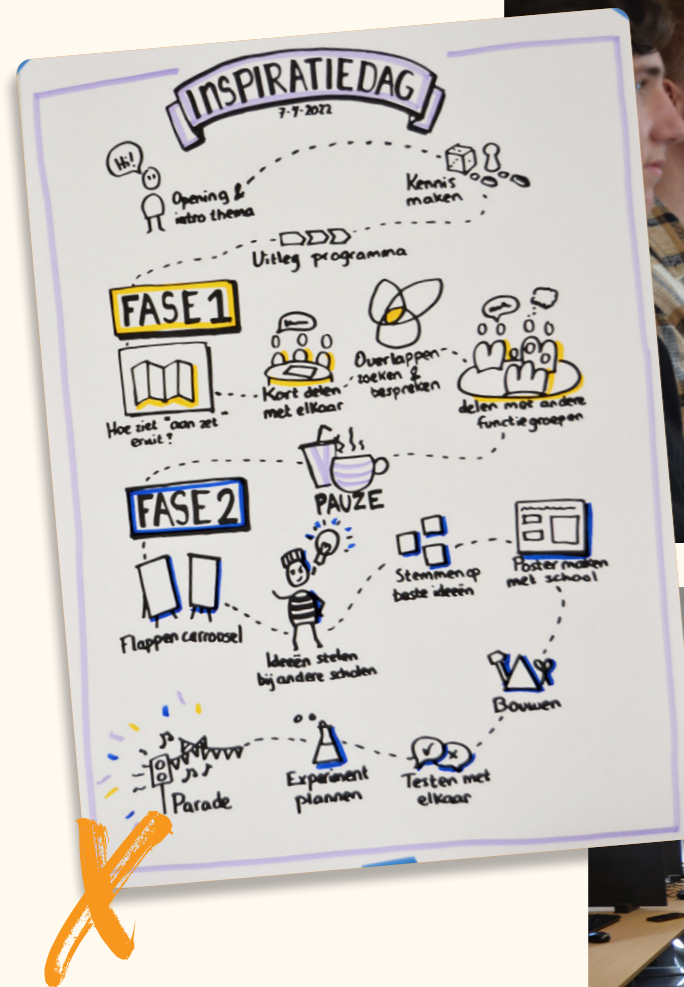 INSPIRATIEDAG
7-9-2022
Hi!
Opening &
intro thema
Kennis
maken
Uitleg programma
FASE 1
Hoe ziet "aan zet"
eruit?
Kort delen
met elkaar
Overlappen
zoeken &
bespreken
delen met andere
functiegroepen
PAUZE
FASE 2
Flappen carrousel
Ideeën stelen
bij andere scholen
Stemmen op
beste ideeën
Poster maken
met school
Bouwen
Testen met
elkaar
Experiment
plannen
Parade